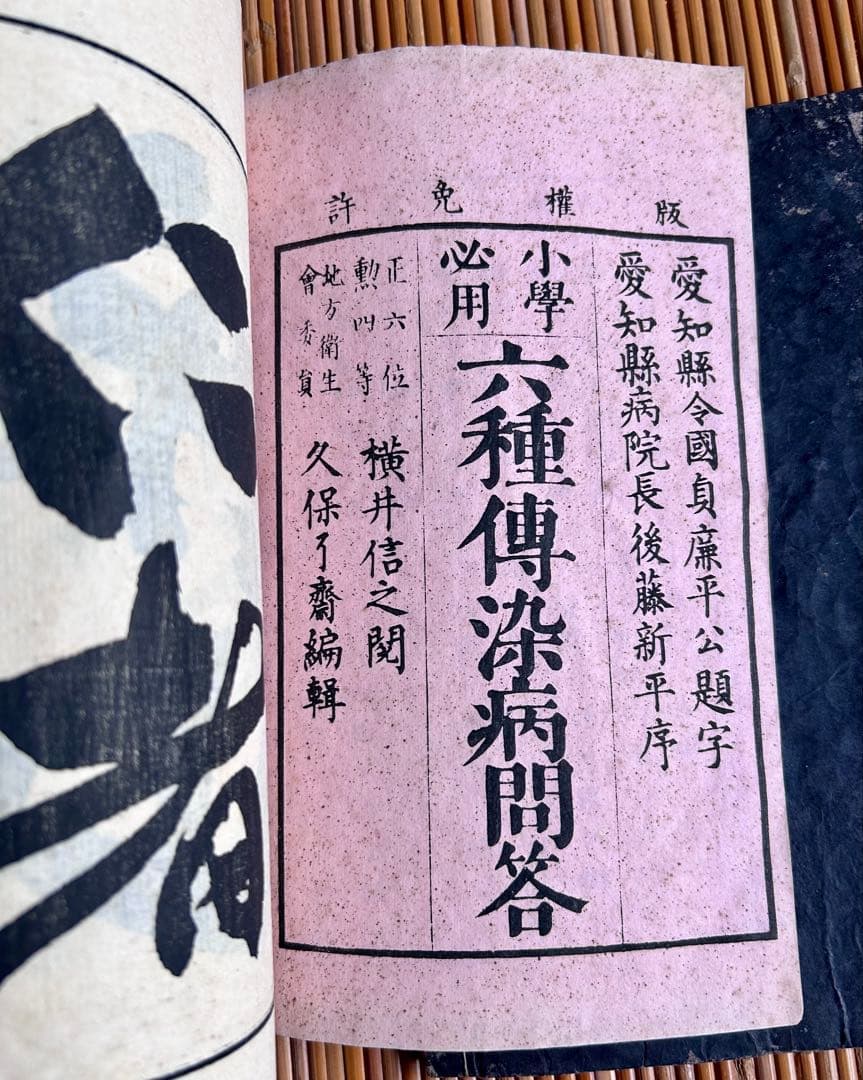 版權免許
愛知縣令國貞廉平公題字
愛知縣病院長後藤新平序
小學
必用
六種傳染病問答
正六位
勲四等
横井信之閲
地方衛生
會委員
久保了齋編輯
者